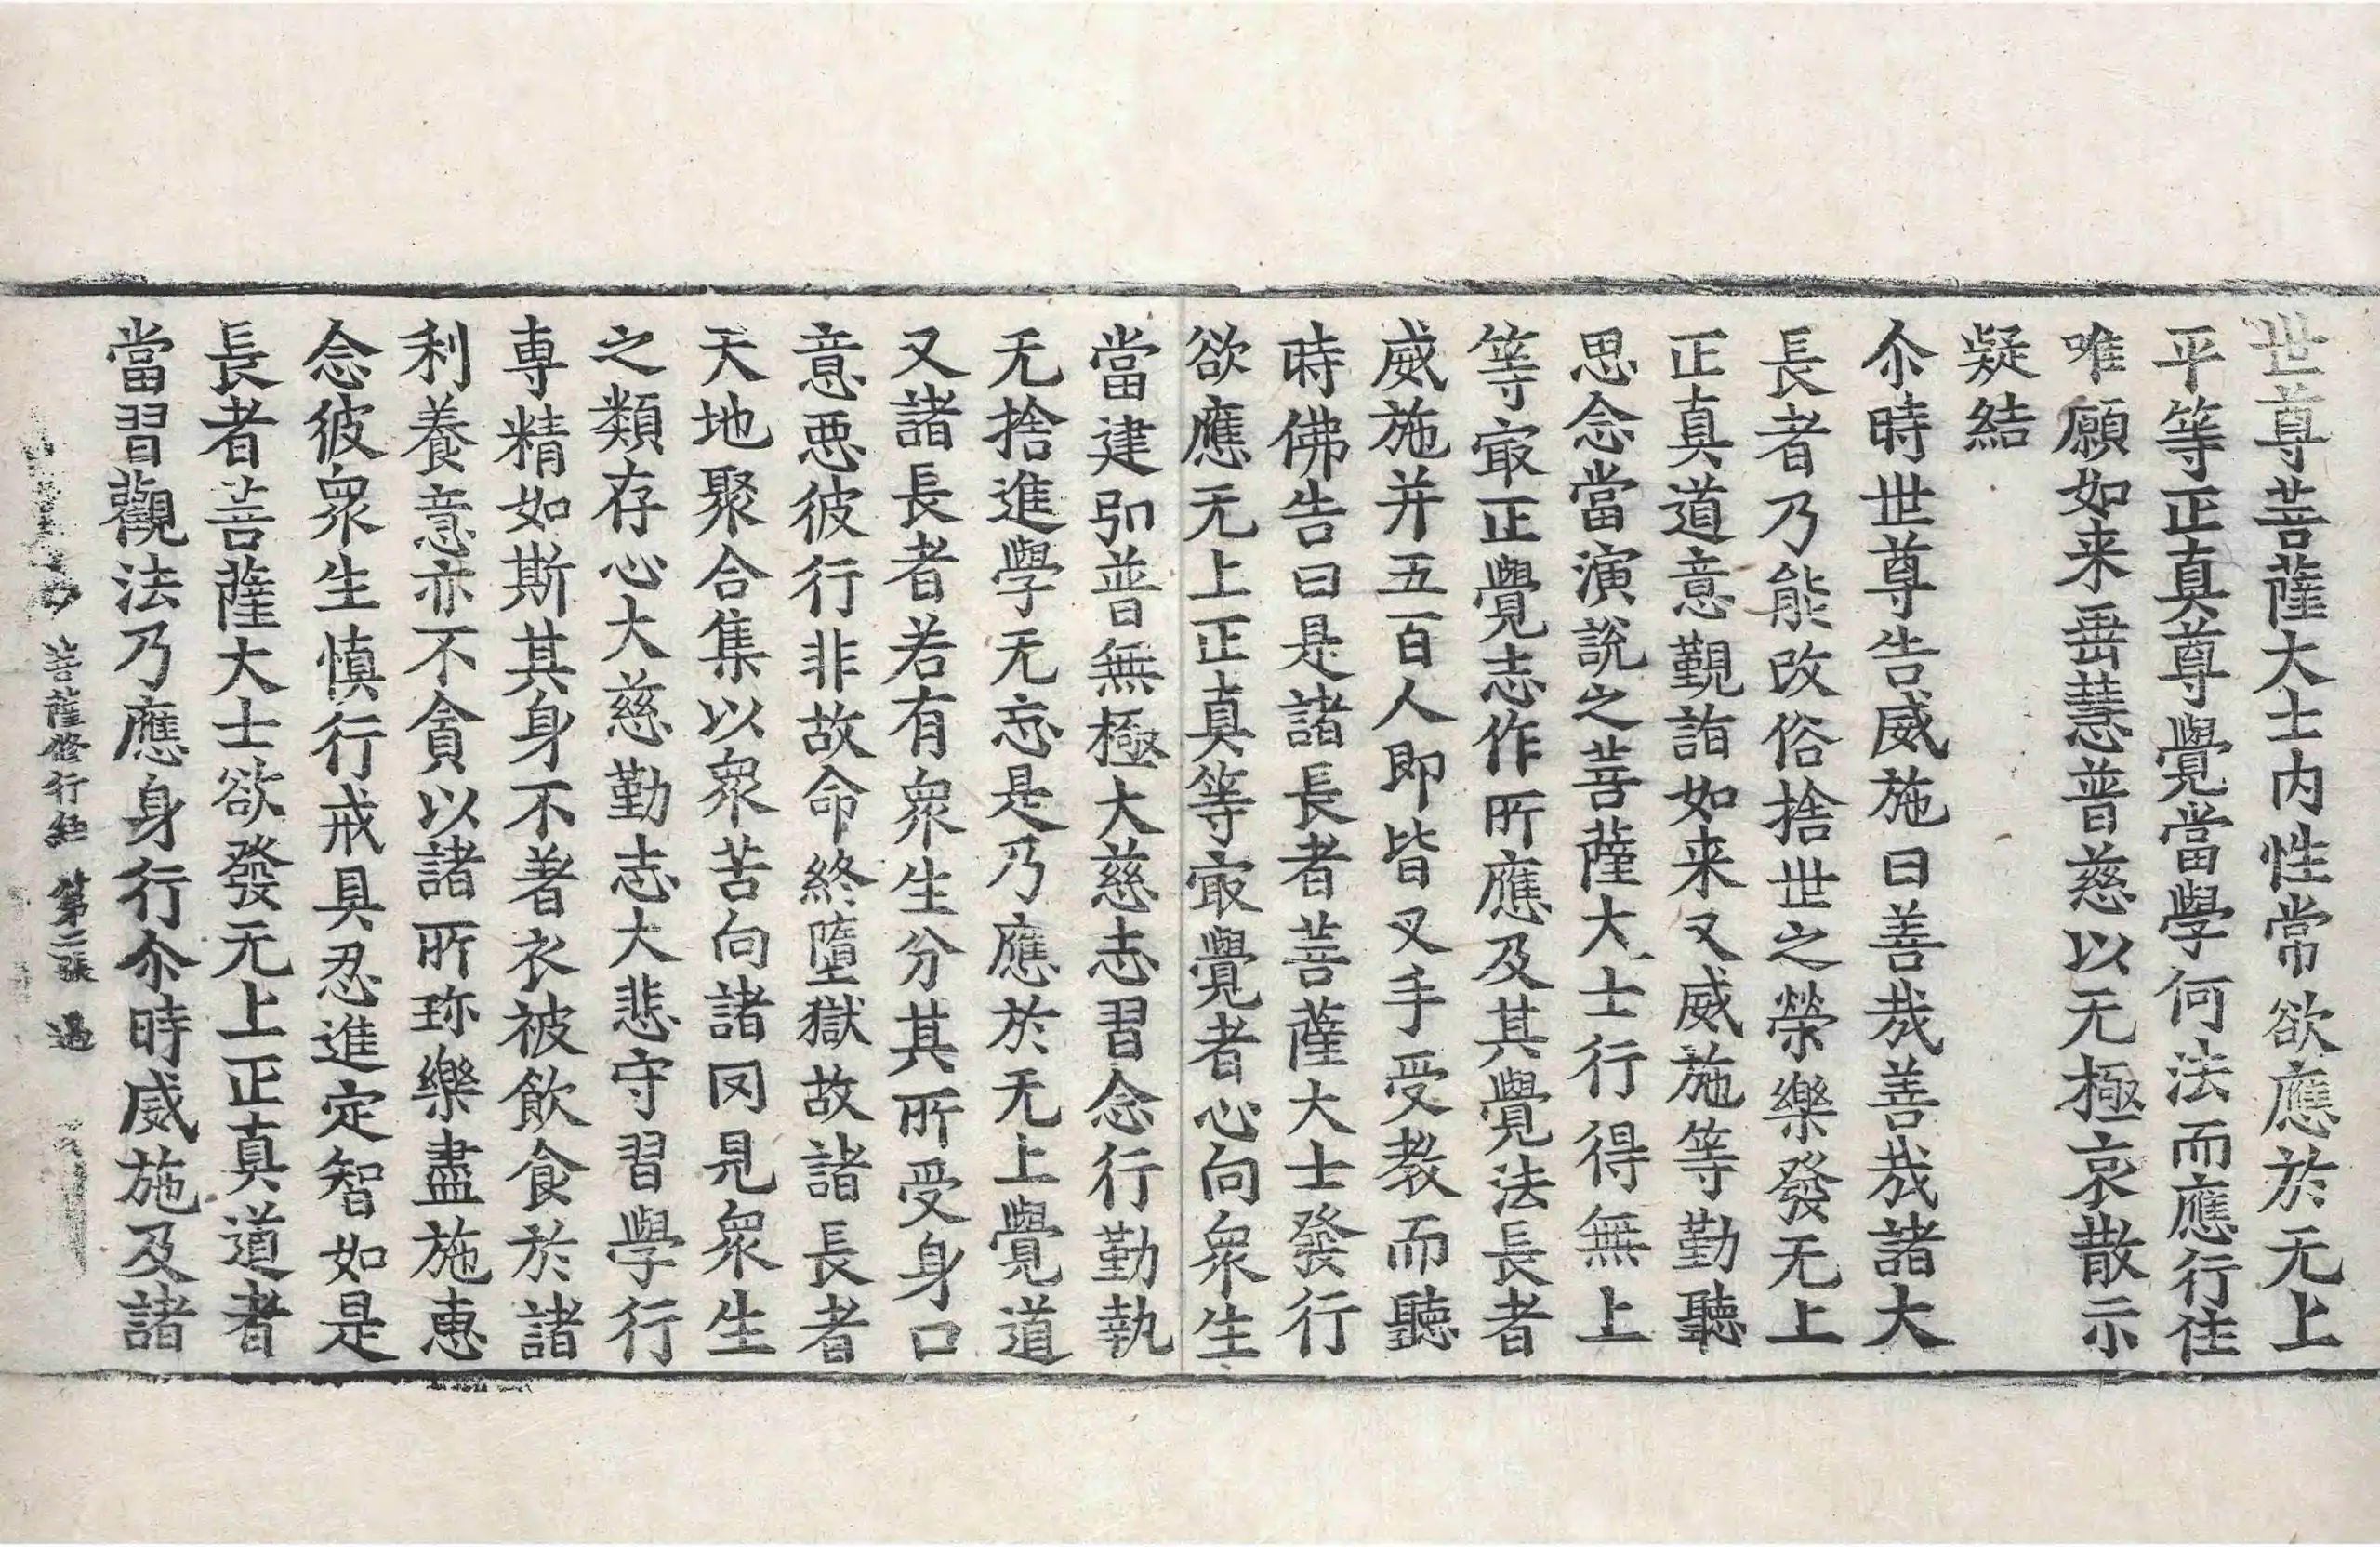 世尊菩薩大士内性常欲應於无上
平等正真尊覺當學何法而應行住
唯願如来垂慧普慈以无極哀散示
疑結
尒時世尊告威施曰善哉善哉諸大
長者乃能改俗捨世之榮樂發无上
正真道意覲詣如来又威施等勤聽
思念當演說之菩薩大士行得無上
等㝡正覺志作所應及其覺法長者
威施并五百人即皆叉手受教而聽
時佛告曰是諸長者菩薩大士發行
欲應无上正真等㝡覺者心向衆生
當建弘普無極大慈志習念行勤執
无捨進學无忘是乃應於无上覺道
又諸長者若有衆生分其所受身口
意惡彼行非故命終墮獄故諸長者
天地聚合集以衆苦向諸囙見衆生
之類存心大慈勤志大悲守習學行
専精如斯其身不著衣被飲食於諸
利養意亦不貪以諸所珎樂盡施惠
念彼衆生慎行戒具忍進定智如是
長者菩薩大士欲發无上正真道者
當習觀法乃應身行尒時威施及諸
菩薩修行經 第二張 過